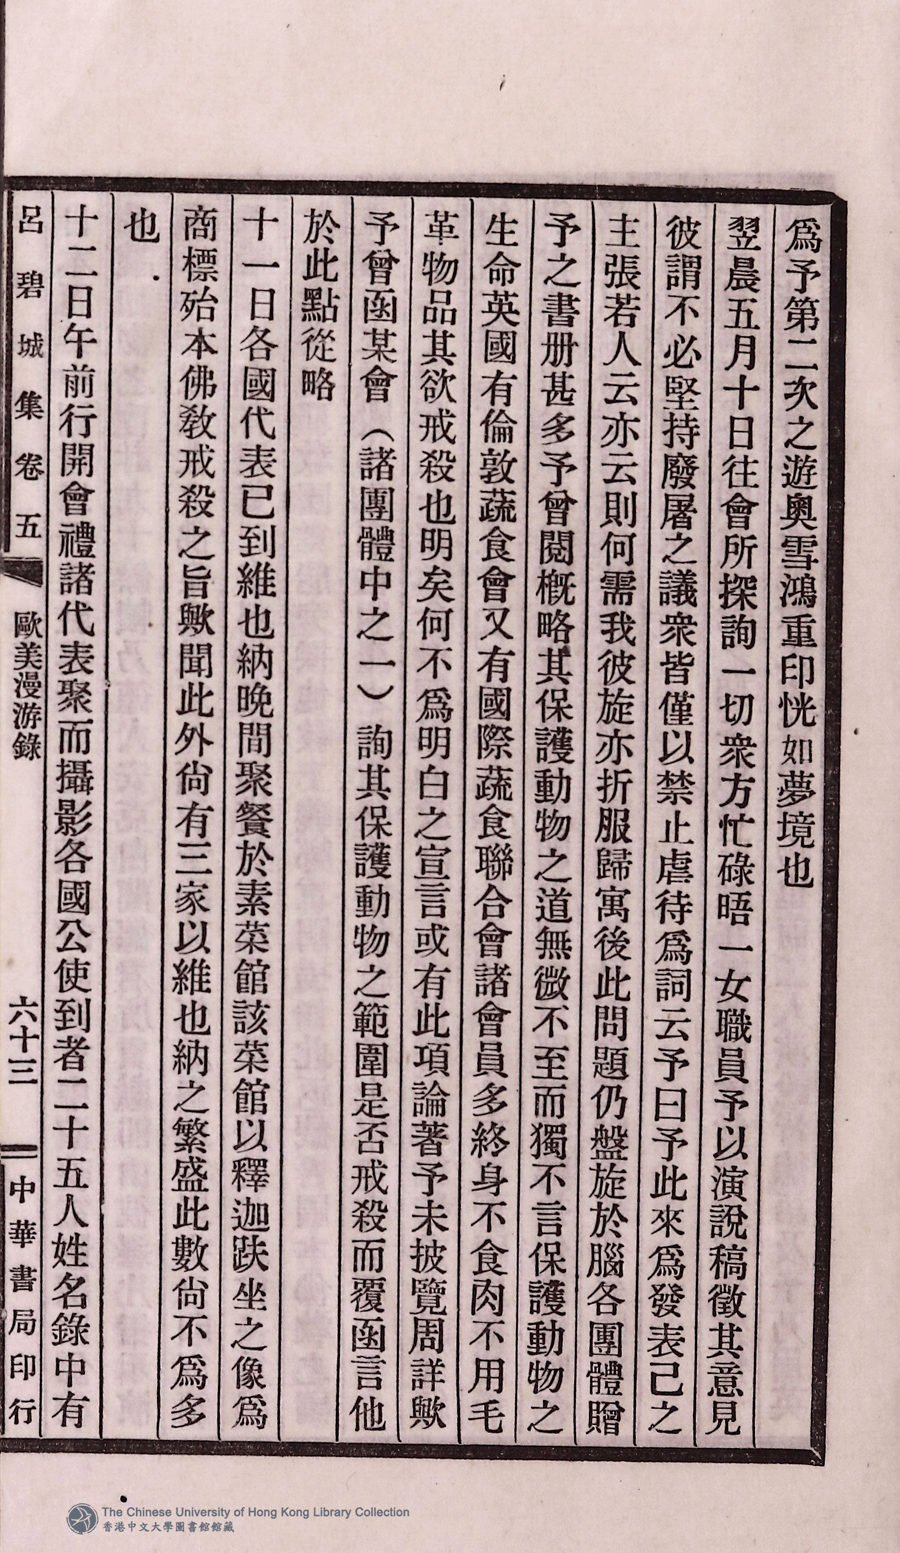 爲予第二次之遊奧雪鴻重印恍如夢境也
翌晨五月十日往會所探詢一切衆方忙碌晤一女職員予以演說稿徵其意見
彼謂不必堅持廢屠之議衆皆僅以禁止虐待爲詞云予曰予此來爲發表己之
主張若人云亦云則何需我彼旋亦折服歸寓後此問題仍盤旋於腦各團體贈
予之書册甚多予曾閱槪略其保護動物之道無微不至而獨不言保護動物之
生命英國有倫敦蔬食會又有國際蔬食聯合會諸會員多終身不食肉不用毛
革物品其欲戒殺也明矣何不爲明白之宣言或有此項論著予未披覽周詳歟
予曾函某會（諸團體中之一）詢其保護動物之範圍是否戒殺而覆函言他
於此點從略
十一日各國代表已到維也納晚間聚餐於素菜館該菜館以釋迦趺坐之像爲
商標殆本佛敎戒殺之旨歟聞此外尙有三家以維也納之繁盛此數尙不爲多
也
十二日午前行開會禮諸代表聚而攝影各國公使到者二十五人姓名錄中有
呂碧城集卷五 歐美漫游錄 六十三 中華書局印行
The Chinese University of Hong Kong Library Collection
香港中文大學圖書館館藏